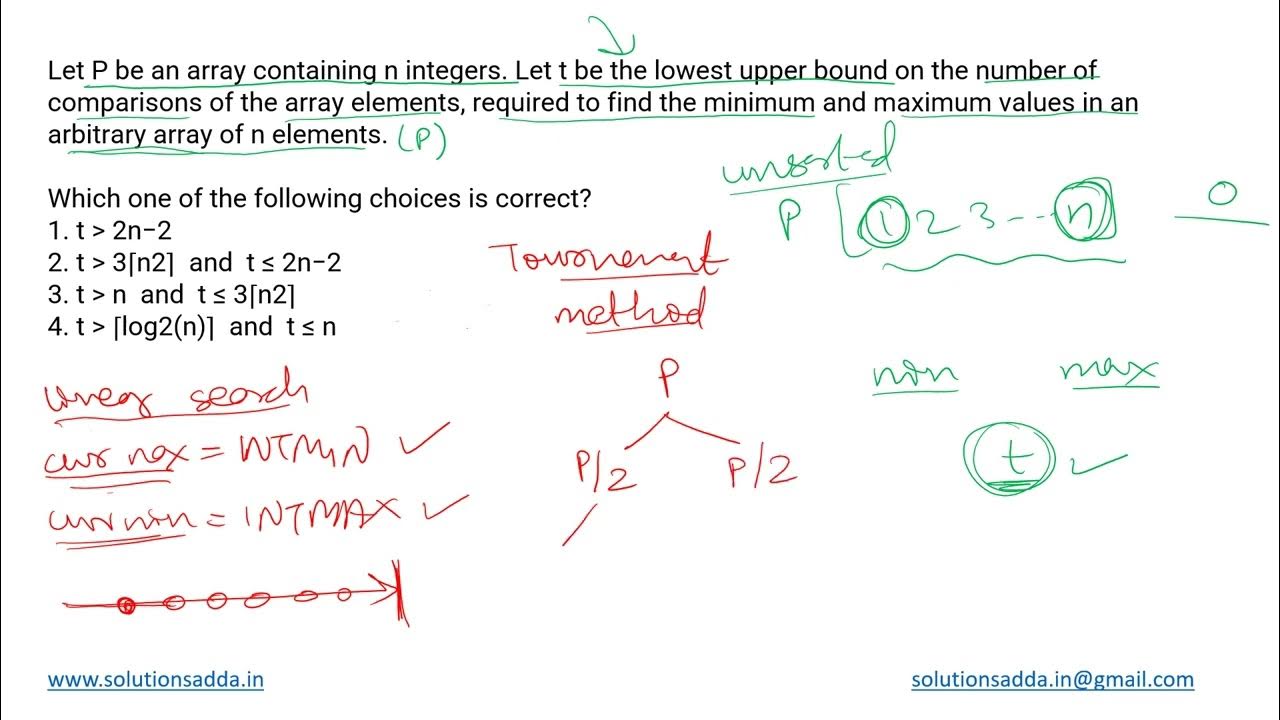 Let P be an array containing n integers. Let t be the lowest upper bound on the number of
comparisons of the array elements, required to find the minimum and maximum values in an
arbitrary array of n elements. (P)
unsorted
Which one of the following choices is correct?
P [ 1 2 3 --- n ] 0
1. t > 2n−2
2. t > 3⌈n2⌉ and t ≤ 2n−2
3. t > n and t ≤ 3⌈n2⌉
4. t > ⌈log2(n)⌉ and t ≤ n
Tournament
method
search
P
min max
P/2 P/2
t
= INTMAX
www.solutionsadda.in
solutionsadda.in@gmail.com